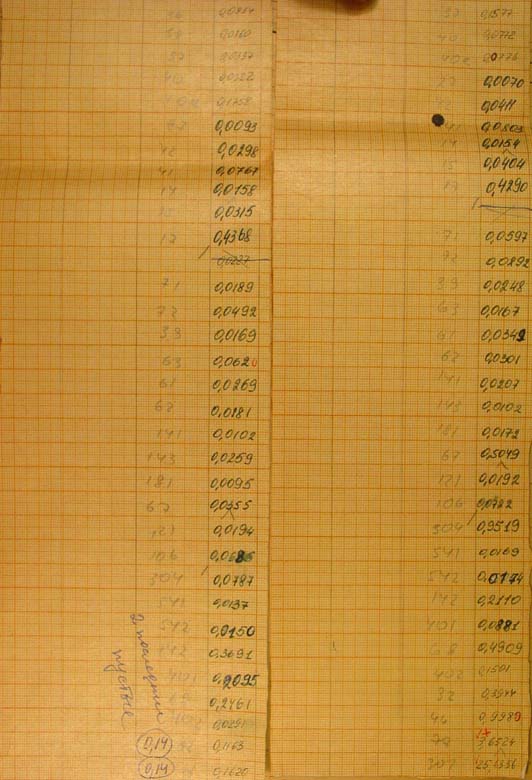 0,0160
0,0337
0,0322
0,1758
62 0,0093
12 0,0298
41 0,0767
14 0,0158
15 0,0315
17 0,4368
71 0,0189
72 0,0492
39 0,0169
63 0,0620
61 0,0269
62 0,0281
141 0,0102
143 0,0259
181 0,0095
67 0,0355
121 0,0194
106
304 0,0787
541 0,0137
542 0,0150
142 0,3691
401
0,2461
0,0291
0,1163
0,1620
2 последних
пустые
0,14
0,14
0,1577
40 0,0712
0,0776
27 0,0070
12 0,0411
41 0,0803
14 0,0154
15 0,0404
17 0,4290
71 0,0597
72 0,0892
39 0,0248
63 0,0167
61 0,0349
62 0,0301
141 0,0207
143 0,0102
181 0,0172
67 0,5049
121 0,0192
106
304 0,9519
541 0,0169
542 0,0174
142 0,2110
401 0,0881
68 0,4909
402 0,1501
32
46 0,9989
307